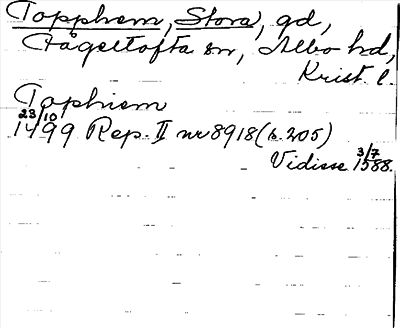 Topphem, Stora, gd,
Fågeltofta sn, Albo hd,
Krist. l.
Tophiem
23/10
1499 Rep. II nr 8918 (s. 205)
Vidisse 3/7 1588.